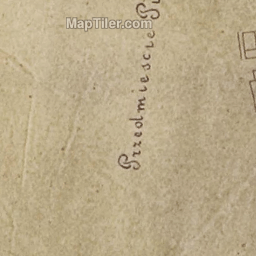 MapTiler.com
Przedmiescie